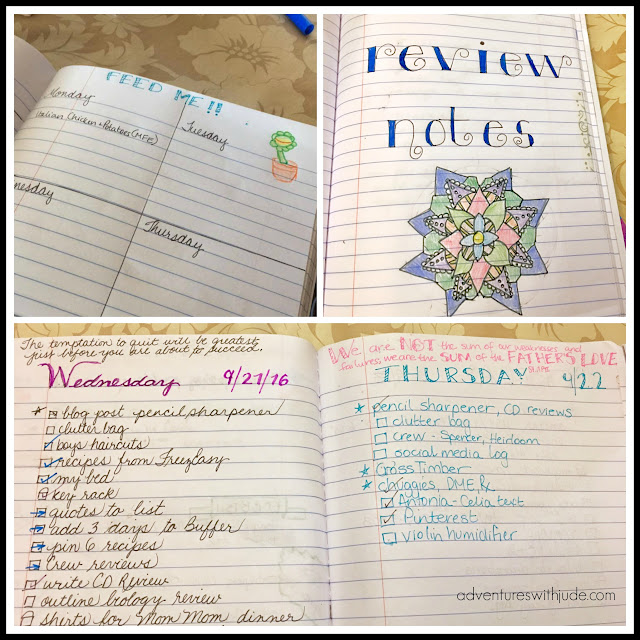 FEED ME!!
Monday
Italian Chicken + Potatoes (MFE)
Tuesday
Thursday
review
notes
The temptation to quit will be greatest
just before you are about to succeed.
Wednesday 9/21/16
blog post pencil sharpener
clutter bag
boys haircuts
recipes from FreezEasy
my bed
key rack
quotes to list
add 3 days to Buffer
pin 6 recipes
Crew reviews
write CD Review
outline biology review
shirts for Mom Mom dinner
WE are NOT the sum of our weaknesses and
failures, we are the SUM of the FATHER'S LOVE
THURSDAY 9/22
pencil sharpener, CD reviews
clutter bag
crew - Spenter, Heirloom
social media log
CrossTimber
chuggies, DME, Rx
Antonia - Celia text
Pinterest
violin humidifier
adventureswithjude.com